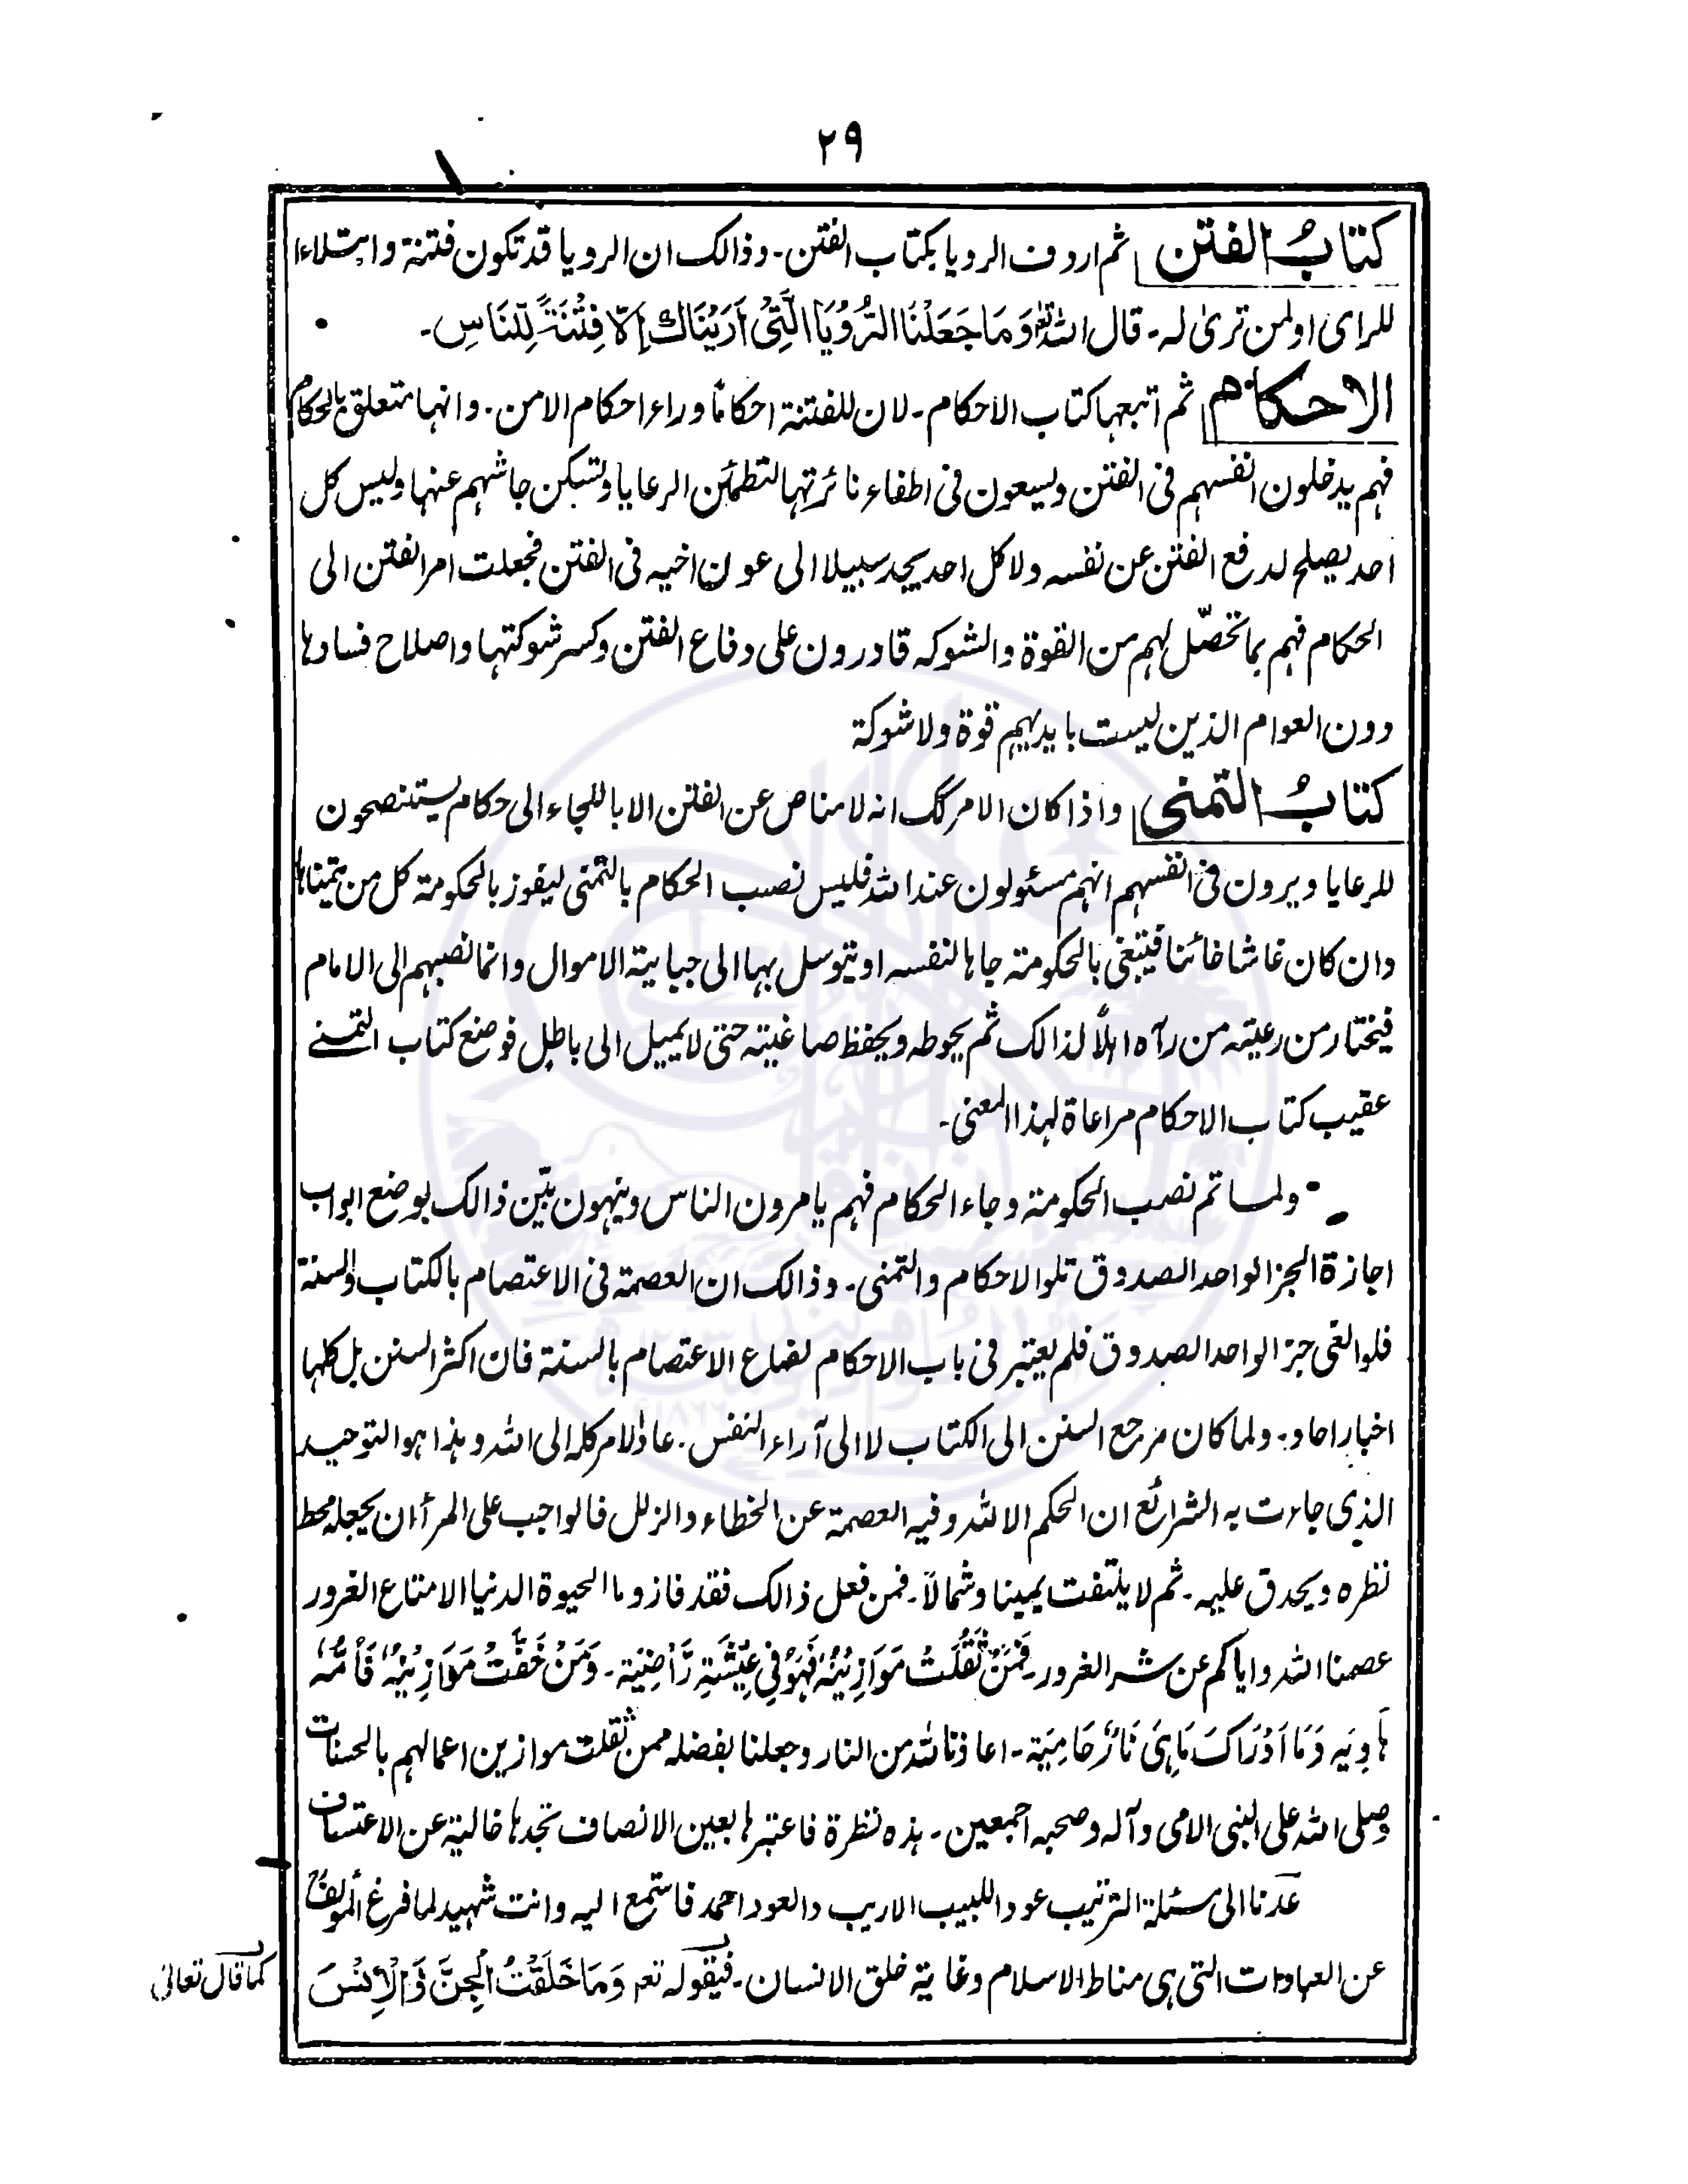 ٢٩
كتابُ الفتن ثم اردف الرويا بكتاب الفتن۔ وذالك ان الرويا قد تكون فتنة وابتلاءا
للرائ او لمن ترىٰ له۔ قال الله تعه وَمَا جَعَلْنَا الرُّوْيَا الَّتِیْ اَرَيْنَاكَ اِلَّا فِتْنَةً لِّلنَّاسِ۔
الاحكام ثم اتبعها كتاب الاحكام۔ لان للفتنة احكاماً وراء احكام الامن۔ وانها تتعلق بالحكام
فهم يدخلون انفسهم فى الفتن ويسعون فى اطفاء نائرتها لتطمئن الرعايا ولتسكن جاشهم عنها وليس كل
احد يصلح لدفع الفتن عن نفسه ولا كل احد يجد سبيلا الى عون اخيه فى الفتن فجعلت امر الفتن الى
الحكام فهم بما تحصّل لهم من القوة والشوكه قادرون على دفاع الفتن وكسر شوكتها واصلاح فسادها
دون العوام الذين ليست بايديهم قوة ولا شوكة
كتابُ التمنى واذا كان الامر كك انه لا مناص عن الفتن الا باللجاء الى حكام يستنصحون
للرعايا ويرون فى انفسهم انهم مسئولون عند الله فليس نصب الحكام بالتمنى ليفوز بالحكومة كل من يتمناها
وان كان غاشا خائنا فيبتغى بالحكومة جاها لنفسه او يتوسل بها الى جباية الاموال وانما نصبهم الى الامام
فيختار من رعيته من رآه اهلاً لذالك ثم يحوطه ويحفظ صاغيته حتى لا يميل الى باطل فوضع كتاب التمنے
عقيب كتاب الاحكام مراعاة لهذا المعنى۔
ولما تم نصب الحكومة وجاء الحكام فهم يامرون الناس وينهون بيّن ذالك بوضع ابواب
اجازة الخبر الواحد الصدوق تلو الاحكام والتمنى۔ وذالك ان العصمة فى الاعتصام بالكتاب والسنة
فلو الغى خبر الواحد الصدوق فلم يعتبر فى باب الاحكام لضاع الاعتصام بالسنة فان اكثر السنن بل كلها
اخبار احاد۔ ولما كان مرجع السنن الى الكتاب لا الى آراء النفس۔ عاد الامر كله الى الله وهذا هو التوحيد
الذى جاءت به الشرائع ان الحكم الا لله وفيه العصمة عن الخطاء والزلل فالواجب على المرأ ان يجعله محط
نظره ويحدق عليه۔ ثم لا يلتفت يمينا وشمالاً۔ فمن فعل ذالك فقد فاز وما الحيوة الدنيا الا متاع الغرور
عصمنا الله واياكم عن شر الغرور۔ فَمَنْ ثَقُلَتْ مَوَازِيْنُهٗ فَهُوَ فِیْ عِيْشَةٍ رَّاضِيَة۔ وَمَنْ خَفَّتْ مَوَازِيْنُهٗ فَاُمُّهٗ
هَاوِيَه وَمَا اَدْرَاكَ مَاهِیَ نَارٌ حَامِيَة۔ اعاذنا الله من النار وجعلنا بفضله ممن ثقلت موازين اعمالهم بالحسنات
وصلى الله على النبى الامى وآله وصحبه اجمعين۔ هذه نظرة فاعتبرها بعين الانصاف تجدها خالية عن الاعتساف
عدنا الى مسئلة الترتيب عود اللبيب الاريب والعود احمد فاستمع اليه وانت شهيد لما فرغ المؤلف
عن العبادات التى هى مناط الاسلام وغاية خلق الانسان۔ فبقوله تعه وَمَا خَلَقْتُ الْجِنَّ وَالْاِنْسَ
كما قال تعالى